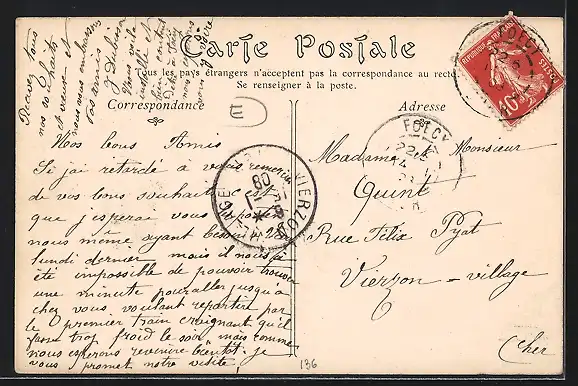 Carte Postale
Tous les pays étrangers n'acceptent pas la correspondance au recto.
Se renseigner à la poste.
Correspondance
Adresse
Nos bons Amis
Si j'ai retardé à vous remercier
de vos bons souhaits c'est
que j'esperai vous
nous même ayant besoin
lundi dernier mais il nous a
été impossible de pouvoir trouver
une minute pour aller jusqu'à
chez vous voulant repartir par
le premier train craignant qu'il
fasse trop froid le soir, mais comme
nous esperons revenir bientôt je
vous promet notre visite
Recevez tous
nos souhaits
et vœux et
nous vous embrassons
vos amis
J Dubisson
Madame & Monsieur
Quint
Rue Félix Pyat
Vierzon-village
Cher
FOECY
FOECY
VIERZON VILLAGE
REPUBLIQUE FRANÇAISE
POSTES
10c
136